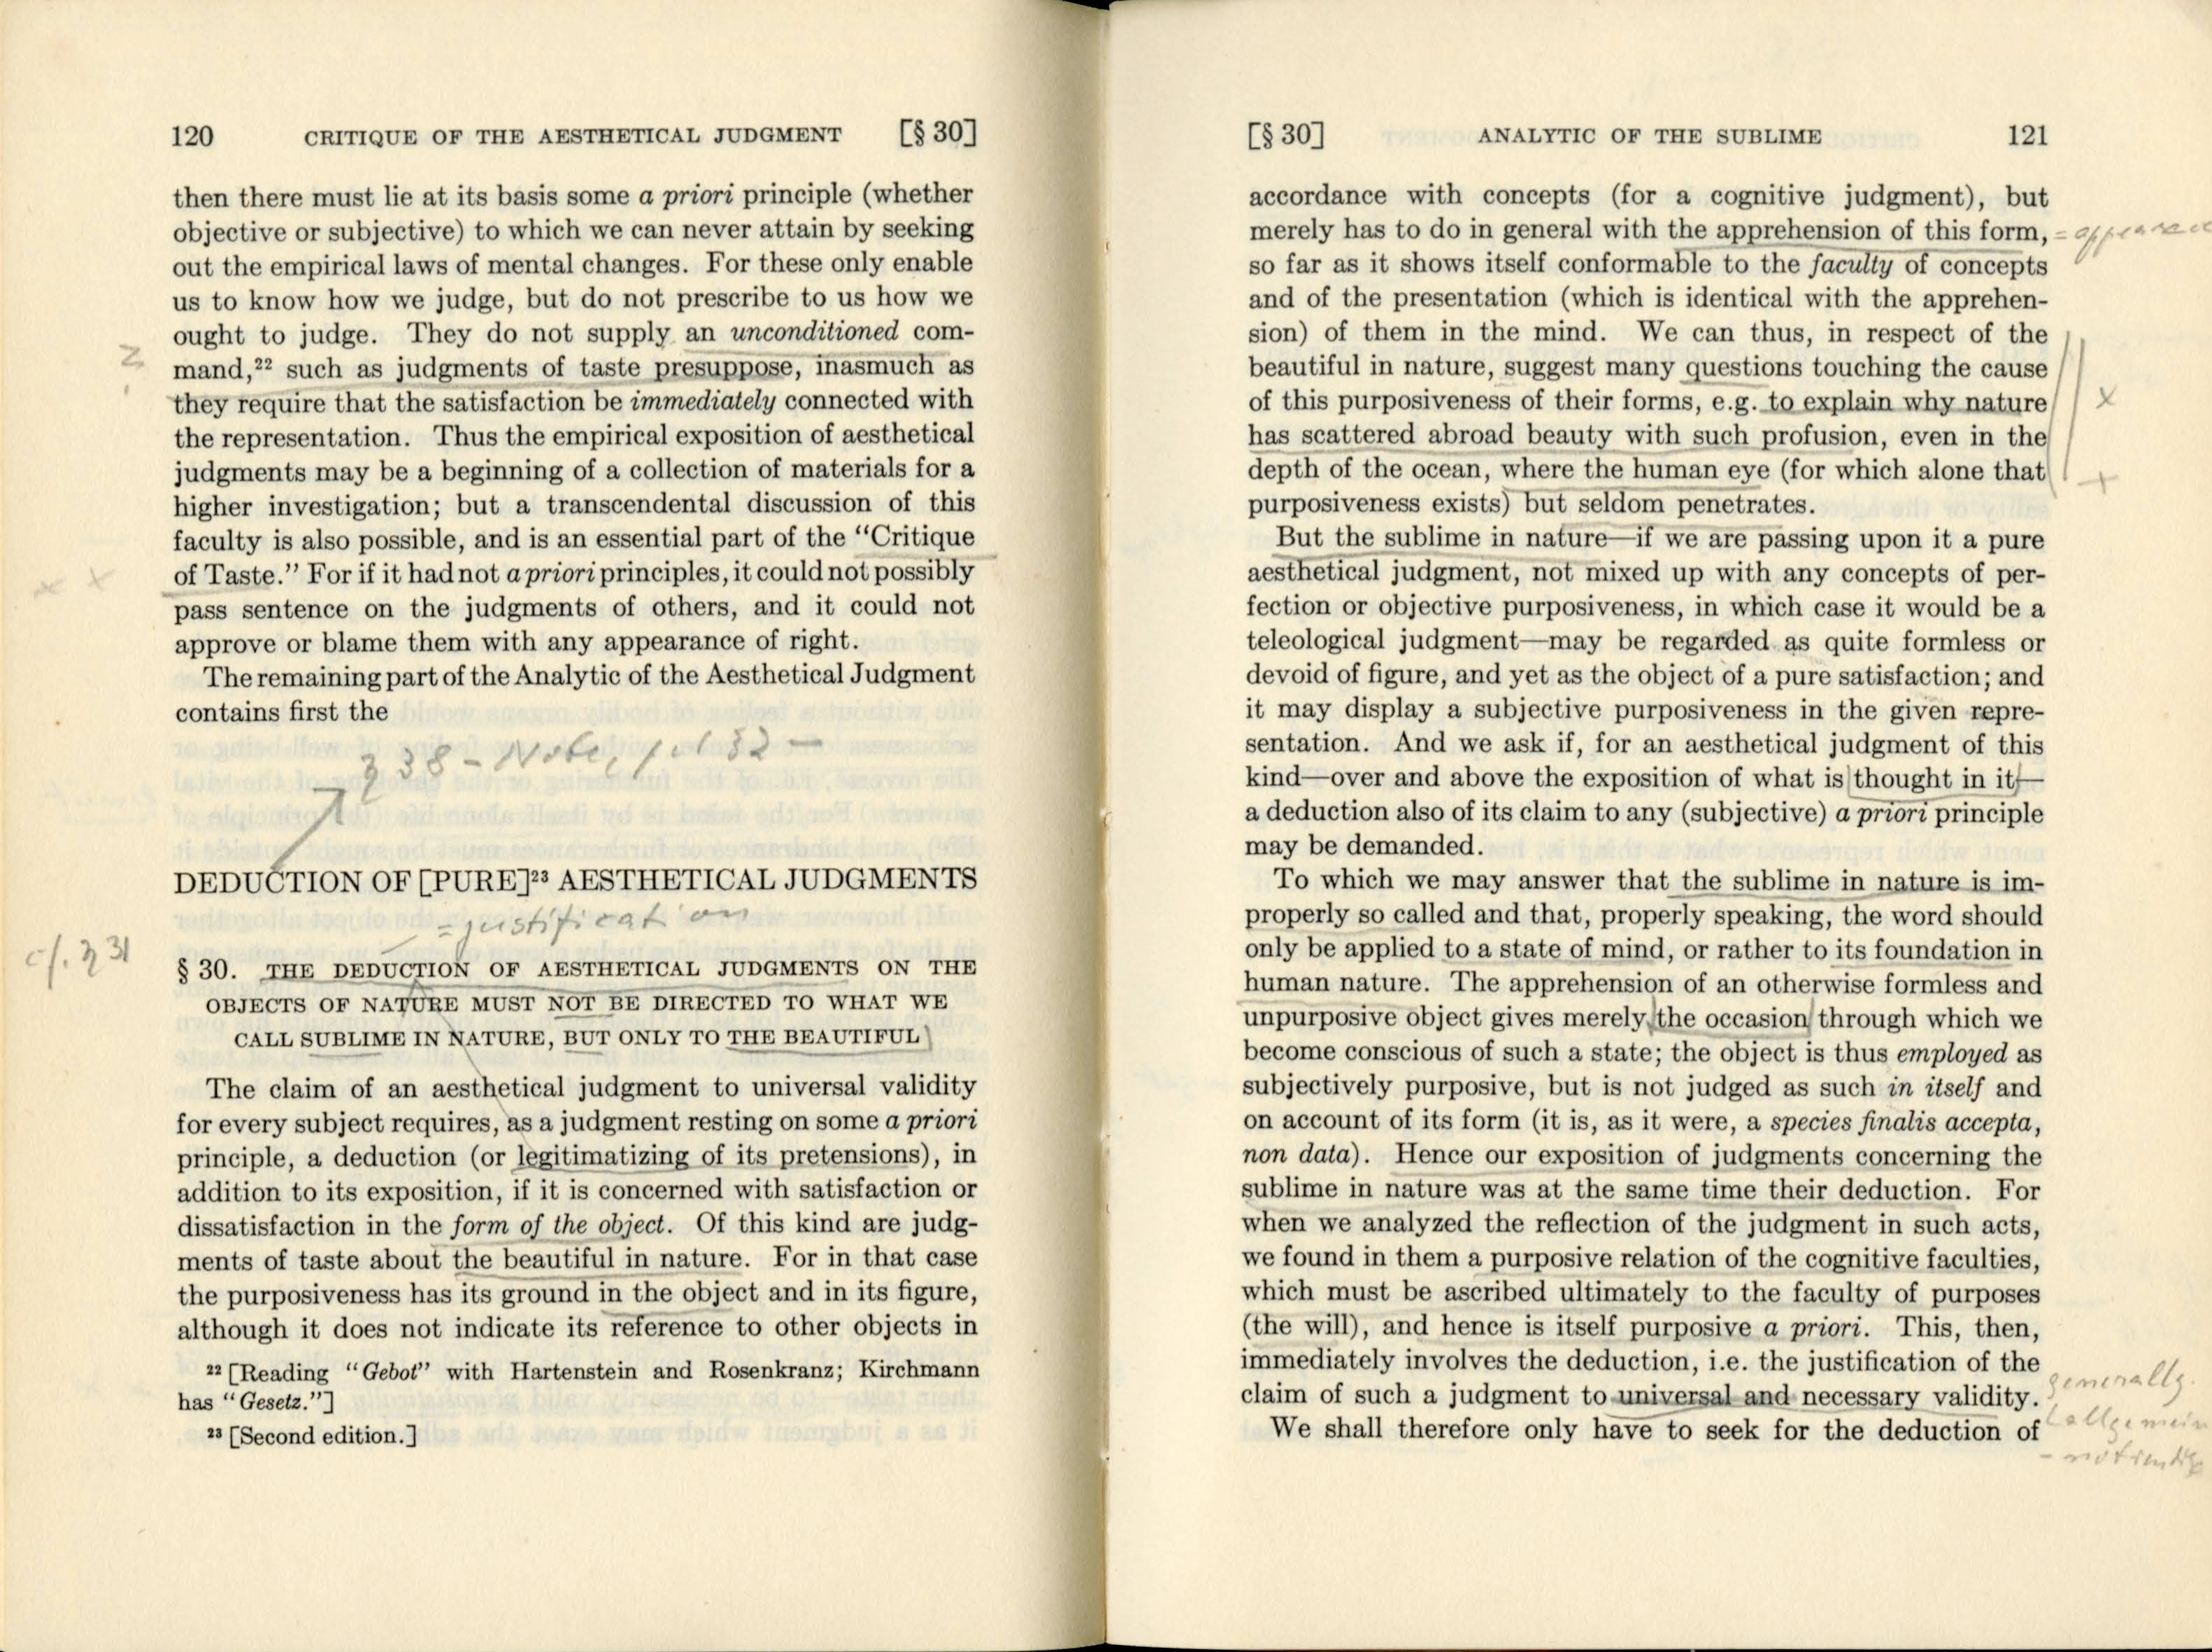 120 CRITIQUE OF THE AESTHETICAL JUDGMENT [§ 30]
then there must lie at its basis some a priori principle (whether
objective or subjective) to which we can never attain by seeking
out the empirical laws of mental changes. For these only enable
us to know how we judge, but do not prescribe to us how we
ought to judge. They do not supply an unconditioned com-
mand,²² such as judgments of taste presuppose, inasmuch as
they require that the satisfaction be immediately connected with
the representation. Thus the empirical exposition of aesthetical
judgments may be a beginning of a collection of materials for a
higher investigation; but a transcendental discussion of this
faculty is also possible, and is an essential part of the “Critique
of Taste.” For if it had not a priori principles, it could not possibly
pass sentence on the judgments of others, and it could not
approve or blame them with any appearance of right.
The remaining part of the Analytic of the Aesthetical Judgment
contains first the
§ 38 - Note, p. 132 -
DEDUCTION OF [PURE]²³ AESTHETICAL JUDGMENTS
= justification
cf. § 31
§ 30. THE DEDUCTION OF AESTHETICAL JUDGMENTS ON THE
OBJECTS OF NATURE MUST NOT BE DIRECTED TO WHAT WE
CALL SUBLIME IN NATURE, BUT ONLY TO THE BEAUTIFUL
The claim of an aesthetical judgment to universal validity
for every subject requires, as a judgment resting on some a priori
principle, a deduction (or legitimatizing of its pretensions), in
addition to its exposition, if it is concerned with satisfaction or
dissatisfaction in the form of the object. Of this kind are judg-
ments of taste about the beautiful in nature. For in that case
the purposiveness has its ground in the object and in its figure,
although it does not indicate its reference to other objects in
²² [Reading “Gebot” with Hartenstein and Rosenkranz; Kirchmann
has “Gesetz.”]
²³ [Second edition.]
[§ 30] ANALYTIC OF THE SUBLIME 121
accordance with concepts (for a cognitive judgment), but
merely has to do in general with the apprehension of this form,
so far as it shows itself conformable to the faculty of concepts
and of the presentation (which is identical with the apprehen-
sion) of them in the mind. We can thus, in respect of the
beautiful in nature, suggest many questions touching the cause
of this purposiveness of their forms, e.g. to explain why nature
has scattered abroad beauty with such profusion, even in the
depth of the ocean, where the human eye (for which alone that
purposiveness exists) but seldom penetrates.
But the sublime in nature—if we are passing upon it a pure
aesthetical judgment, not mixed up with any concepts of per-
fection or objective purposiveness, in which case it would be a
teleological judgment—may be regarded as quite formless or
devoid of figure, and yet as the object of a pure satisfaction; and
it may display a subjective purposiveness in the given repre-
sentation. And we ask if, for an aesthetical judgment of this
kind—over and above the exposition of what is thought in it—
a deduction also of its claim to any (subjective) a priori principle
may be demanded.
To which we may answer that the sublime in nature is im-
properly so called and that, properly speaking, the word should
only be applied to a state of mind, or rather to its foundation in
human nature. The apprehension of an otherwise formless and
unpurposive object gives merely the occasion through which we
become conscious of such a state; the object is thus employed as
subjectively purposive, but is not judged as such in itself and
on account of its form (it is, as it were, a species finalis accepta,
non data). Hence our exposition of judgments concerning the
sublime in nature was at the same time their deduction. For
when we analyzed the reflection of the judgment in such acts,
we found in them a purposive relation of the cognitive faculties,
which must be ascribed ultimately to the faculty of purposes
(the will), and hence is itself purposive a priori. This, then,
immediately involves the deduction, i.e. the justification of the
claim of such a judgment to universal and necessary validity.
generally.
allgemein
We shall therefore only have to seek for the deduction of